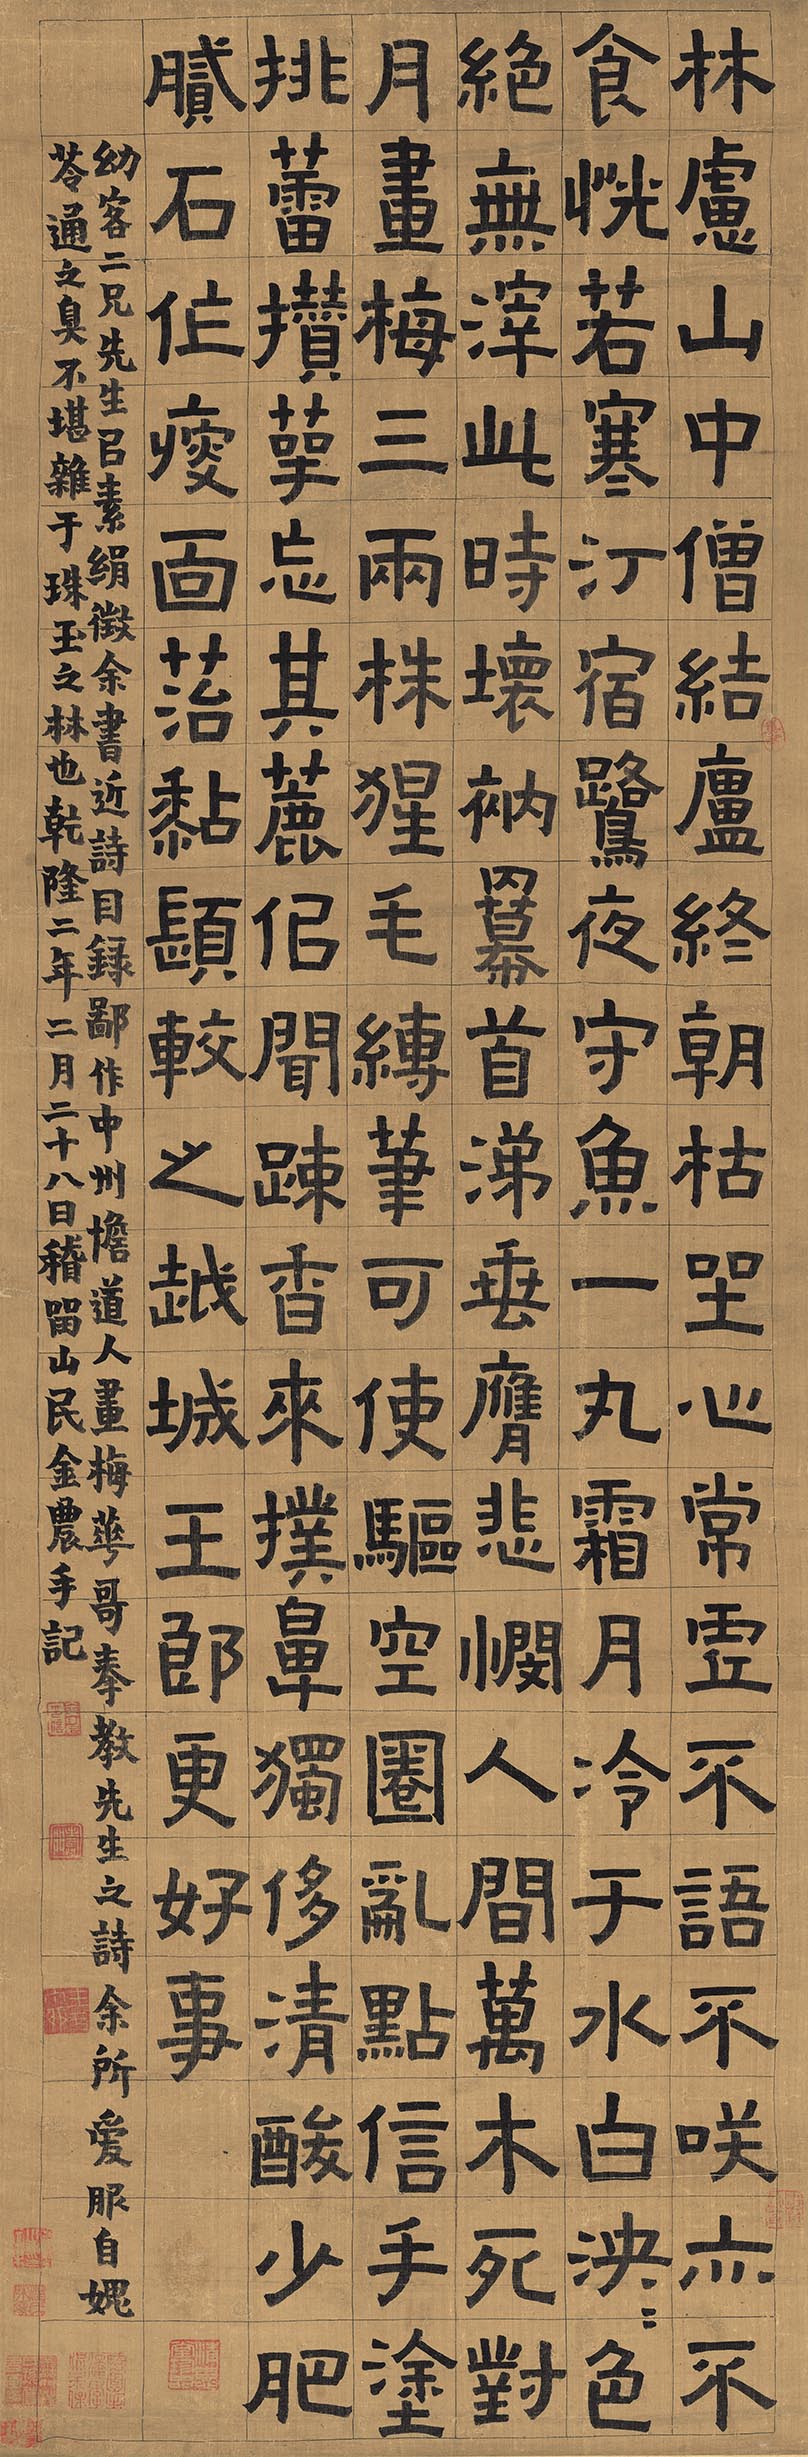 林慮山中僧結廬終朝枯坐心常雲不語不咲亦不
食恍若寒汀宿鷺夜守魚一丸霜月冷于水白泱〻色
絕無滓此時壞衲冪首涕垂膺悲憫人間萬木死對
月畫梅三兩株猩毛縛筆可使驅空圈亂點信手塗
挑蕾攢萼忘其麤但聞踈香來撲鼻獨侈清酸少肥
膩石作瘦面苔黏鬚較之越城王郎更好事
幼客二兄先生㠯素絹徵余書近詩目録鄙作中州憺道人畫梅華哥奉教先生之詩余所爱服自媿
苓通之臭不堪雜于珠玉之林也乾隆二年二月二十八日稽留山民金農手記